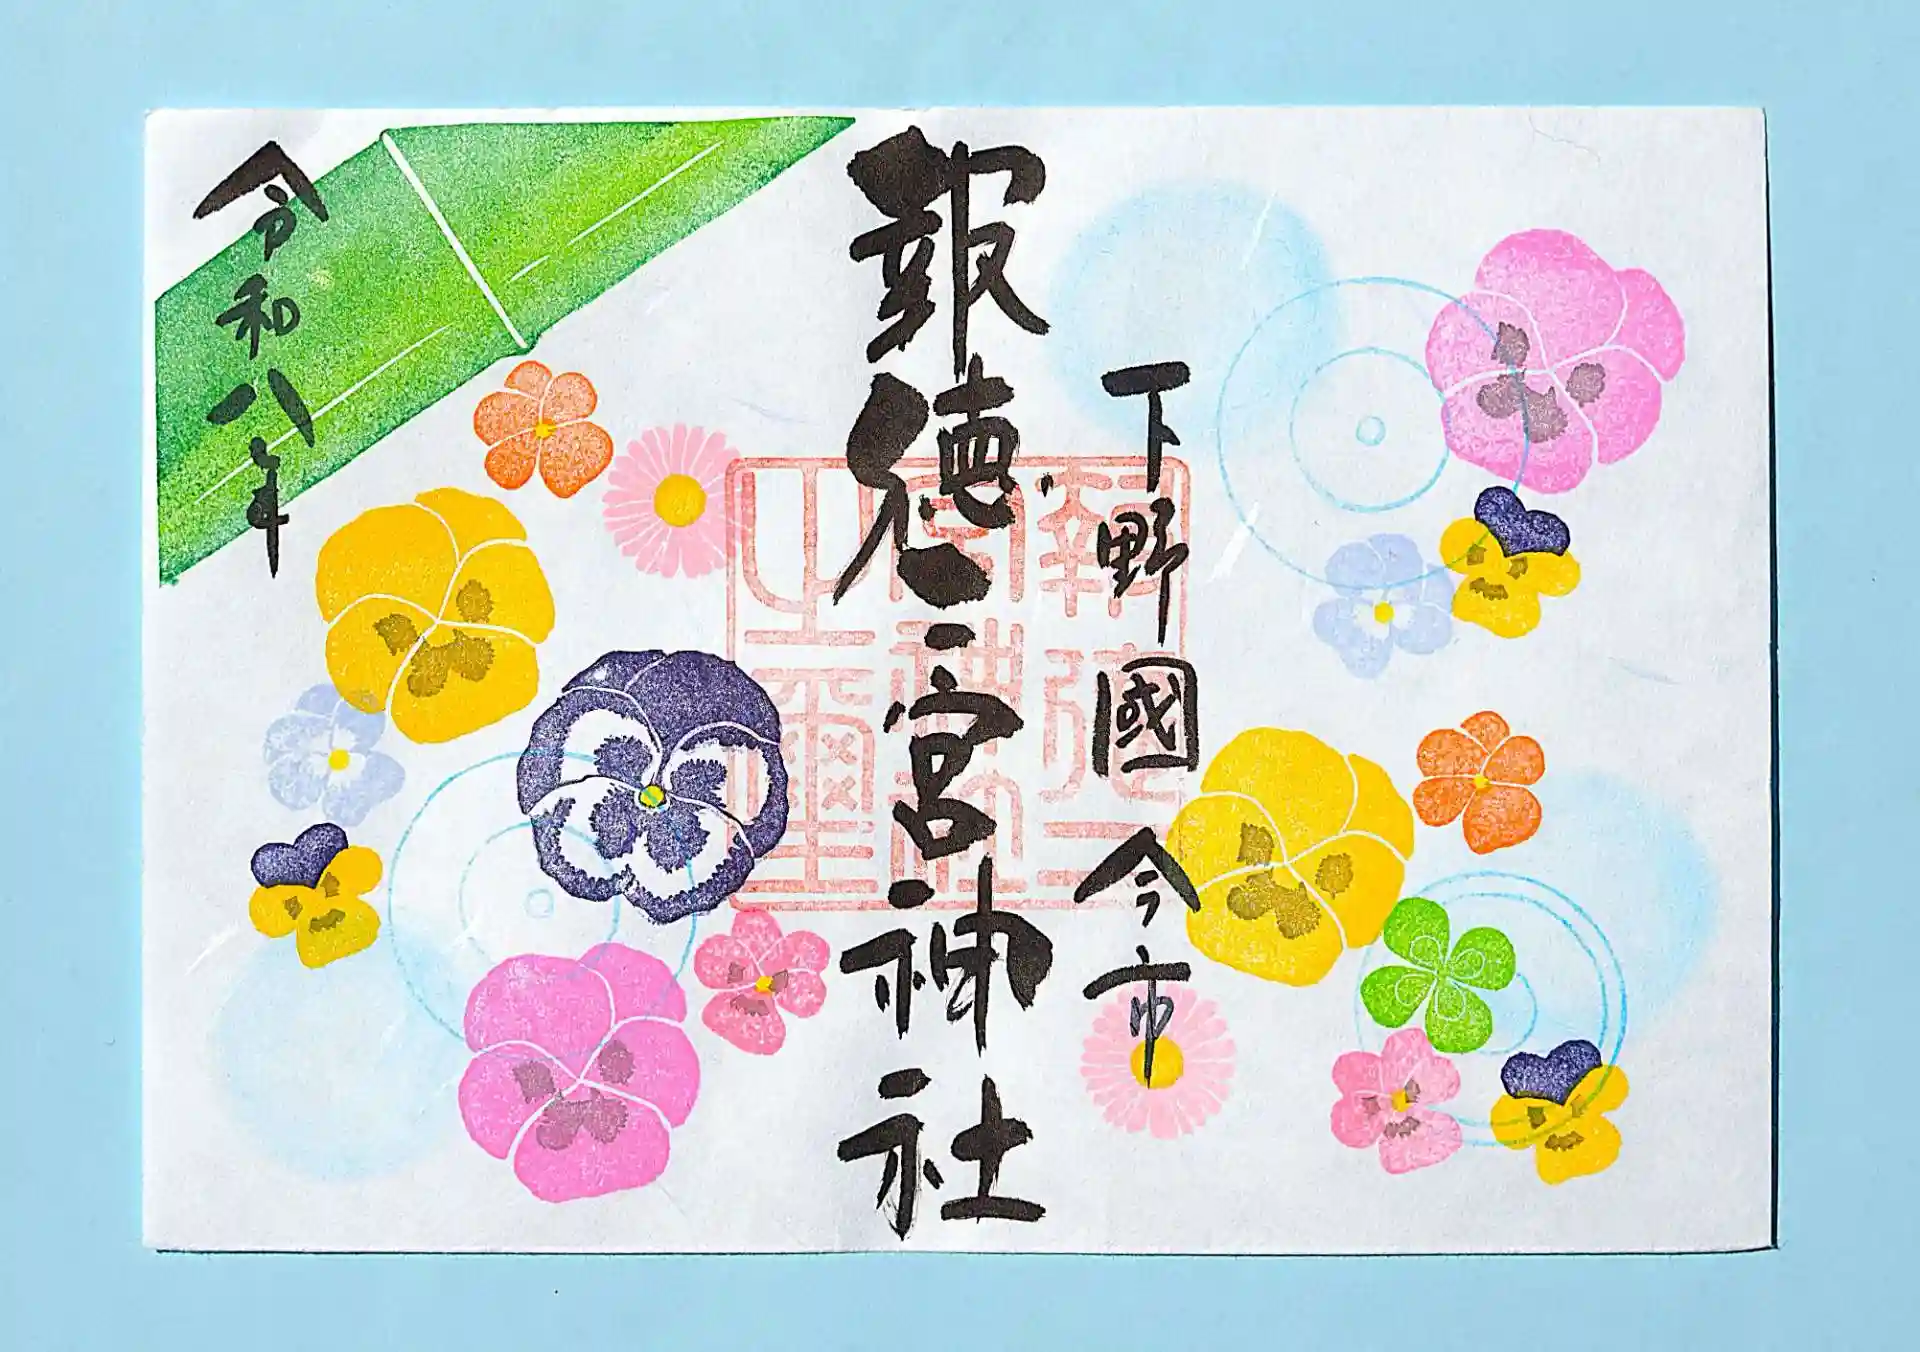 下野國今市
報徳二宮神社
報徳二宮神社之璽
令和八年